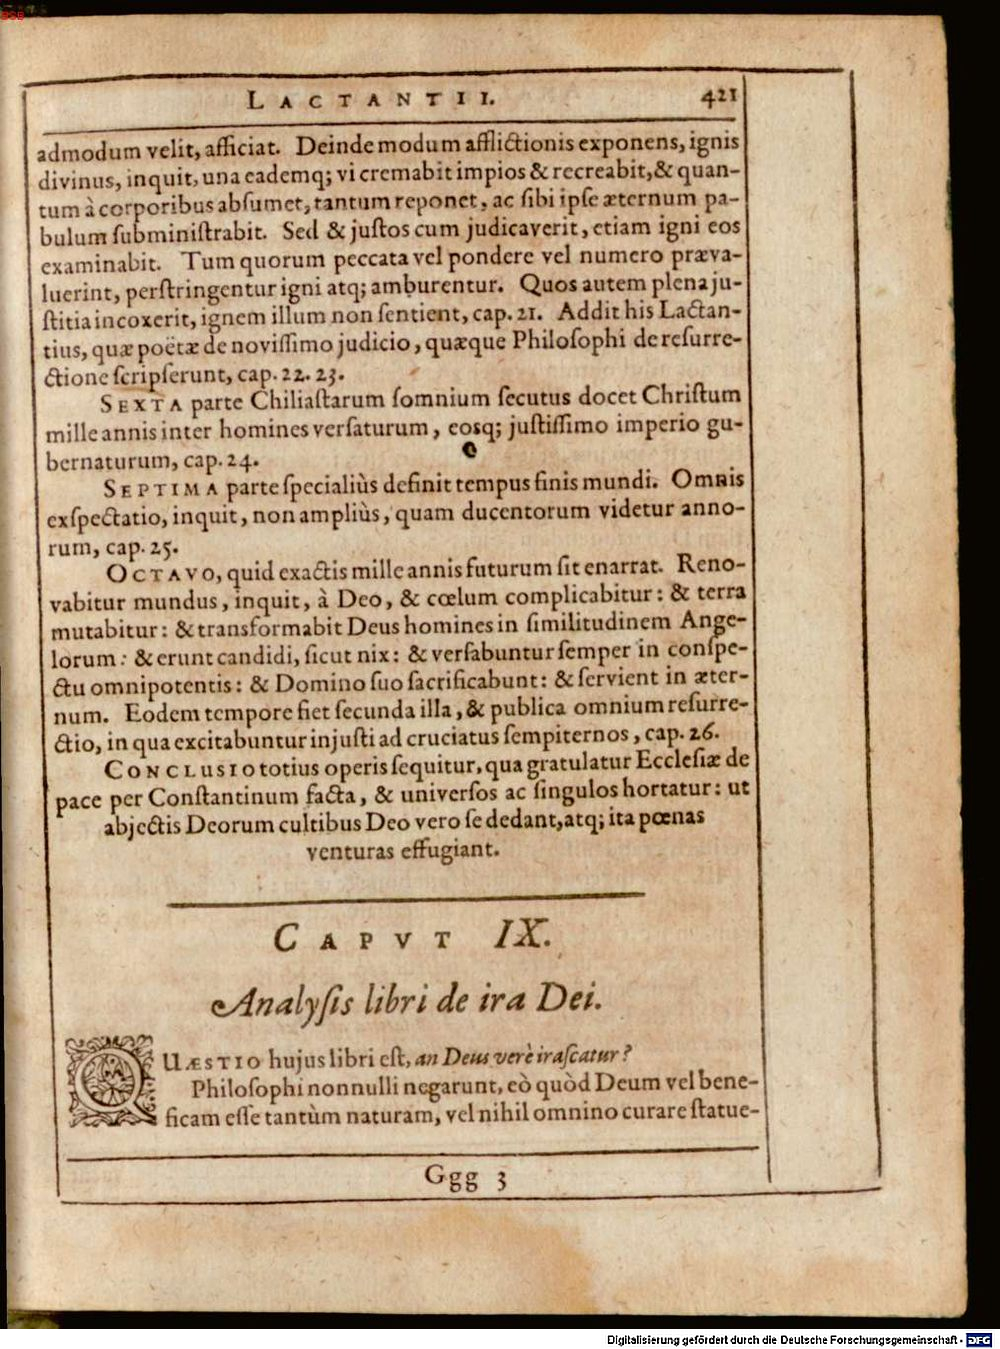 BSB
LACTANTII. 421
admodum velit, afficiat. Deinde modum afflictionis exponens, ignis
divinus, inquit, una eademq; vi cremabit impios & recreabit, & quan-
tum à corporibus absumet, tantum reponet, ac sibi ipse æternum pa-
bulum subministrabit. Sed & justos cum judicaverit, etiam igni eos
examinabit. Tum quorum peccata vel pondere vel numero præva-
luerint, perstringentur igni atq; amburentur. Quos autem plena ju-
stitia incoxerit, ignem illum non sentient, cap. 21. Addit his Lactan-
tius, quæ poëtæ de novissimo judicio, quæque Philosophi de resurre-
ctione scripserunt, cap. 22. 23.
SEXTA parte Chiliastarum somnium secutus docet Christum
mille annis inter homines versaturum, eosq; justissimo imperio gu-
bernaturum, cap. 24.
SEPTIMA parte specialiùs definit tempus finis mundi. Omnis
exspectatio, inquit, non ampliùs, quam ducentorum videtur anno-
rum, cap. 25.
OCTAVO, quid exactis mille annis futurum sit enarrat. Reno-
vabitur mundus, inquit, à Deo, & cœlum complicabitur: & terra
mutabitur: & transformabit Deus homines in similitudinem Ange-
lorum: & erunt candidi, sicut nix: & versabuntur semper in conspe-
ctu omnipotentis: & Domino suo sacrificabunt: & servient in æter-
num. Eodem tempore fiet secunda illa, & publica omnium resurre-
ctio, in qua excitabuntur injusti ad cruciatus sempiternos, cap. 26.
CONCLUSIO totius operis sequitur, qua gratulatur Ecclesiæ de
pace per Constantinum facta, & universos ac singulos hortatur: ut
abjectis Deorum cultibus Deo vero se dedant, atq; ita pœnas
venturas effugiant.
CAPVT IX.
Analysis libri de ira Dei.
QUÆSTIO hujus libri est, an Deus verè irascatur?
Philosophi nonnulli negarunt, eò quòd Deum vel bene-
ficam esse tantùm naturam, vel nihil omnino curare statue-
Ggg 3
Digitalisierung gefördert durch die Deutsche Forschungsgemeinschaft - DFG